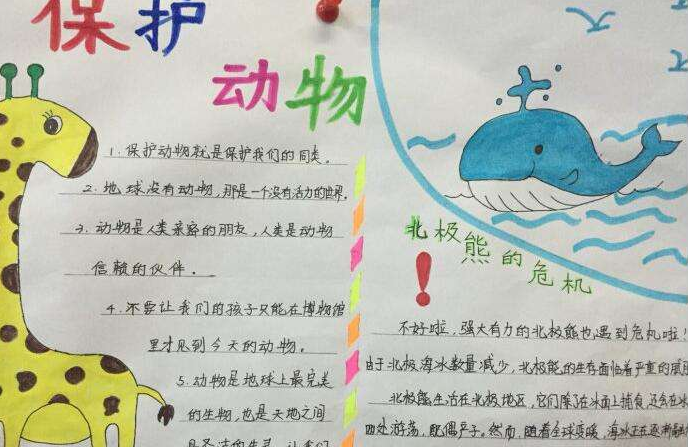 保护
动物
1. 保护动物就是保护我们的同类。
2. 地球没有动物，那是一个没有活力的世界。
3. 动物是人类亲密的朋友，人类是动物
信赖的伙伴。
4. 不要让我们的孩子只能在博物馆
里才见到今天的动物。
5. 动物是地球上最完美
的生物，也是天地之间
北极熊的危机！
不好啦，强大有力的北极熊也遇到危机啦！
由于北极海冰数量减少，北极熊的生存面临着严重的威胁
北极熊生活在北极地区，它们除了在冰面上捕食，还会在冰
四处游荡，配偶产子。然而，随着全球变暖，海冰正在逐渐融